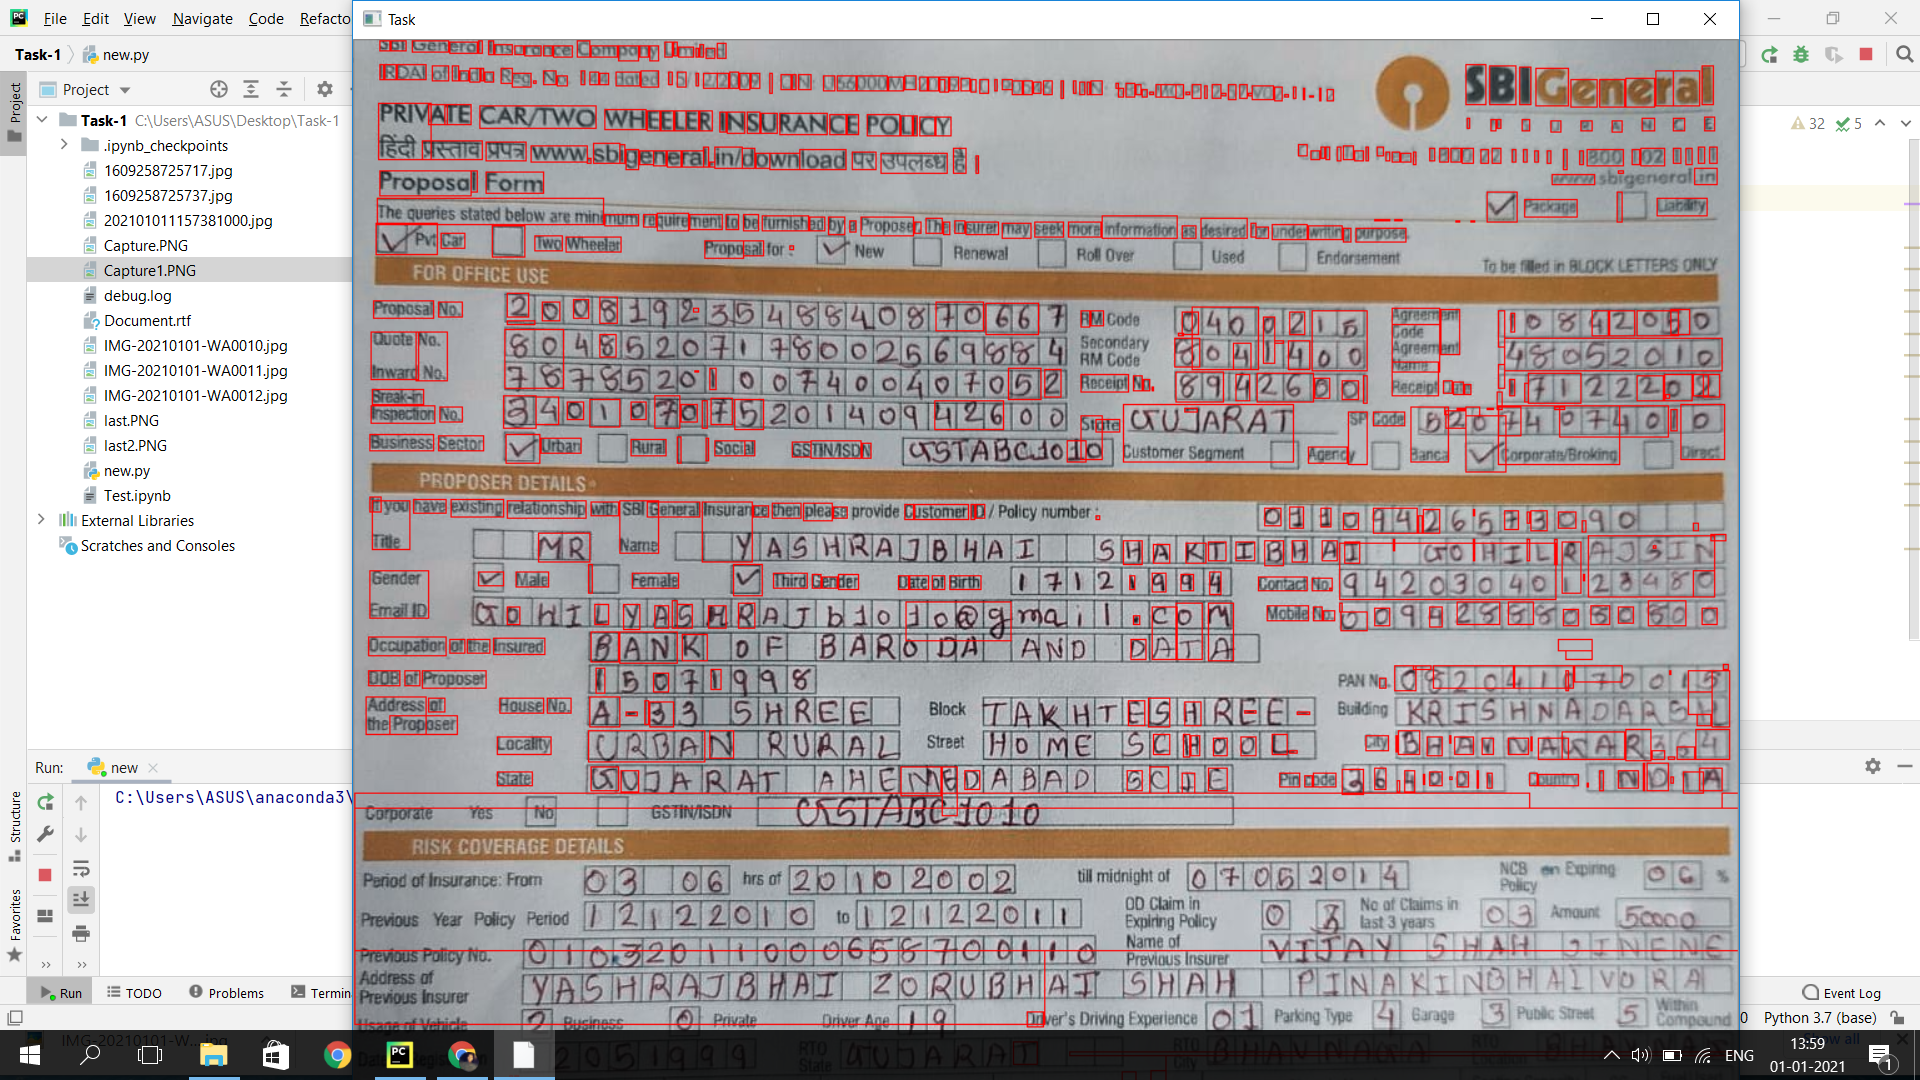 File Edit View Navigate Code Refacto
Task
Task-1 new.py
Project
Task-1 C:\Users\ASUS\Desktop\Task-1
.ipynb_checkpoints
1609258725717.jpg
1609258725737.jpg
202101011157381000.jpg
Capture.PNG
Capture1.PNG
debug.log
Document.rtf
IMG-20210101-WA0010.jpg
IMG-20210101-WA0011.jpg
IMG-20210101-WA0012.jpg
last.PNG
last2.PNG
new.py
Test.ipynb
External Libraries
Scratches and Consoles
32 5
Run: new
C:\Users\ASUS\anaconda3\
Structure
Favorites
SBI General Insurance Company Limited
IRDAI of India Reg. No. 144 dated 15/12/2009
SBI General
INSURANCE
PRIVATE CAR/TWO WHEELER INSURANCE POLICY
हिंदी प्रस्ताव प्रपत्र www.sbigeneral.in/download पर उपलब्ध है
www.sbigeneral.in
Proposal Form
Package Liability
The queries stated below are minimum requirement to be furnished by a Proposer. The insurer may seek more information as desired for underwriting purpose.
Pvt Car Two Wheeler Proposal for : New Renewal Roll Over Used Endorsement To be filled in BLOCK LETTERS ONLY
FOR OFFICE USE
Proposal No. 20081923548840870667 RM Code 0400215 Agreement Code 10842050
Quote No. 80485207178002569884 Secondary RM Code 8041400 Agreement Name 48052010
Inward No. 78785201007400407052 Receipt No. 8942600 Receipt Date 17122202
Break-in Inspection No. 34010707520140942600 State GUJARAT SP Code 82074074010
Business Sector Urban Rural Social GSTIN/ISDN GSTABC1010 Customer Segment Agency Banca Corporate/Broking Direct
PROPOSER DETAILS
If you have existing relationship with SBI General Insurance then please provide Customer ID / Policy number : 01109426573090
Title MR Name YASHRAJBHAI SHAKTIBHAI GOHIL RAJSIN
Gender Male Female Third Gender Date of Birth 17121994 Contact No. 94203040123480
Email ID GOHILYASHRAJb1010@gmail.COM Mobile No.
Occupation of the Insured BANK OF BARODA AND DATA
DOB of Proposer 15071998 PAN No.
Address of the Proposer House No. A-33 SHREE Block TAKHTESHREE- Building KRISHNADARSH
Locality URBAN RURAL Street HOME SCHOOL City
State GUJARAT AHEMEDABAD Pin code 364001 Country INDIA
Corporate Yes No GSTIN/ISDN GSTABC1010
RISK COVERAGE DETAILS
Period of Insurance: From 03 06 hrs of 20102002 till midnight of 07052014 NCB on Expiring Policy 06 %
Previous Year Policy Period 12122010 to 12122011 OD Claim in Expiring Policy 0 No of Claims in last 3 years 03 Amount 50000
Previous Policy No. 01032011000658700110 Name of Previous Insurer VIJAY SHAH JINENE
Address of Previous Insurer YASHRAJBHAI ZORUBHAI SHAH PINAKINBHAI VORA
Usage of Vehicle 2 Business 0 Private Driver Age 19 Driver's Driving Experience 01 Parking Type 4 Garage 3 Public Street 5 Within Compound
Run TODO Problems Termin Event Log
Python 3.7 (base)
ENG
13:59
01-01-2021
1